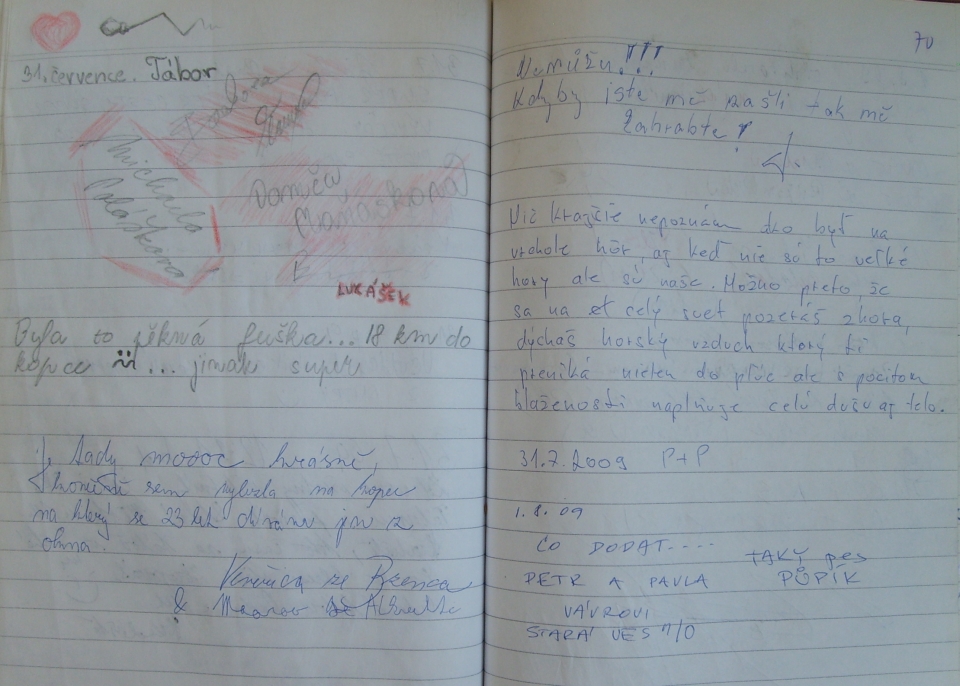 31. července. Tábor
Michaela
Poláškova
Domiča
LUKÁŠEK
Byla to pěkná fuška... 18 km do
kopce ... jinak super
Je tady moooc krásně,
konečně sem vylezla na kopec
na který se 23 let dívám jen z
okna.
Verunca ze Brenca
&
70
Nemůžu!!!
Kdyby jste mě našli tak mě
zahrabte!
Nič krajšie nepoznám ako byť na
vrchole hôr, aj keď nie sú to veľké
hory ale sú naše. Možno preto, že
sa na celý svet pozeráš zhora,
dýchaš horský vzduch ktorý ti
preniká nielen do pľúc ale s pocitom
blaženosti naplňuje celú dušu aj telo.
31.7.2009 P+P
1.8.09
CO DODAT....
TAKÝ pes
PETR A PAVLA
PŮPÍK
VÁVROVI
STARÁ VES n/O